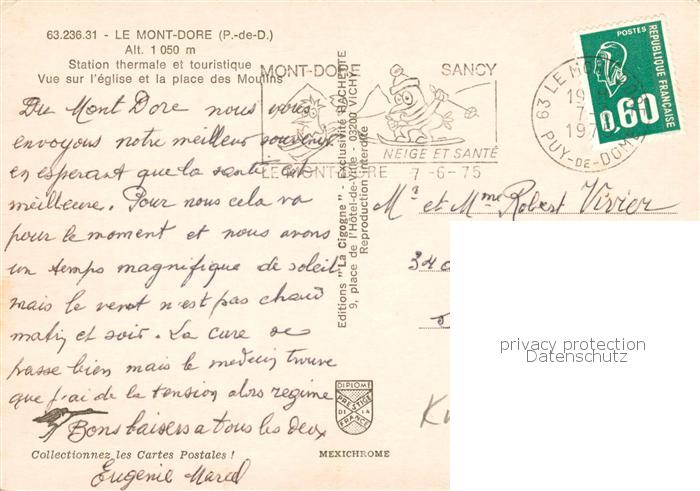 63.236.31 - LE MONT-DORE (P.-de-D.)
Alt. 1 050 m
Station thermale et touristique
Vue sur l'église et la place des Moulins
Du Mont Dore nous vous
envoyons notre meilleur souvenir
en esperant que la santé est
meilleure. Pour nous cela va
pour le moment et nous avons
un temps magnifique de soleil
mais le vent n'est pas chaud
matin et soir. La cure se
passe bien mais le medecin trouve
que j'ai de la tension alors regime
Bons baisers a tous les deux
Eugénie Marcel
Collectionnez les Cartes Postales !
Editions "La Cigogne" - Exclusivité HACHETTE
9, place de l'Hôtel-de-Ville - 03200 VICHY
Reproduction interdite
DIPLOME
PRESTIGE
DE LA
FRANCE
MEXICHROME
MONT-DORE SANCY
NEIGE ET SANTÉ
LE MONT-DORE 7-6-75
63 LE MONT-DORE
19
7-
197
PUY-DE-DOME
POSTES
REPUBLIQUE FRANÇAISE
0,60
Mr et Mme Robert Vivier
privacy protection
Datenschutz